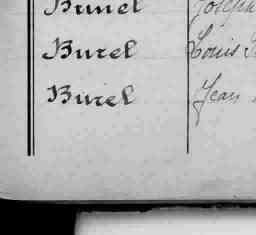 Burel Joseph
Burel Louis
Burel Jean